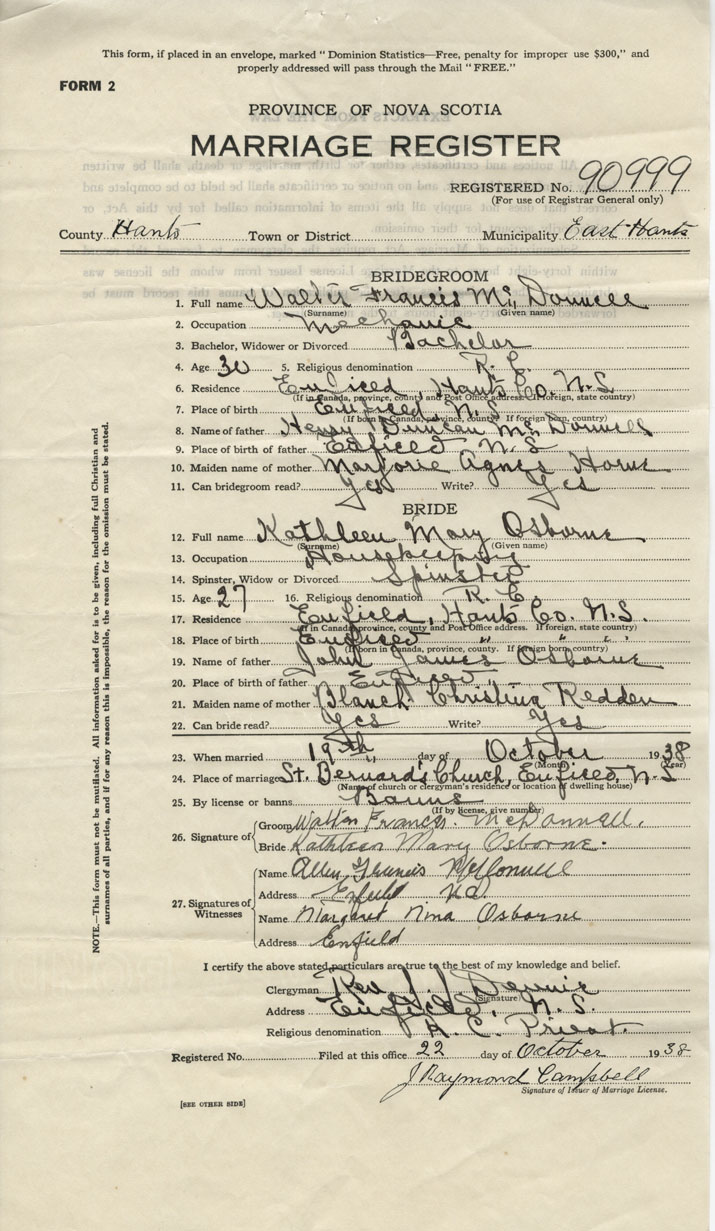 This form, if placed in an envelope, marked " Dominion Statistics—Free, penalty for improper use $300," and
properly addressed will pass through the Mail " FREE."
FORM 2
PROVINCE OF NOVA SCOTIA
MARRIAGE REGISTER
REGISTERED No. 90999
(For use of Registrar General only)
County Hants Town or District Municipality East Hants
BRIDEGROOM
1. Full name Walter Francis Mc Donnell
(Surname) (Given name)
2. Occupation Mechanic
3. Bachelor, Widower or Divorced Bachelor
4. Age 30 5. Religious denomination R. C.
6. Residence Enfield, Hants Co. N.S.
(If in Canada, province, county and Post Office address. If foreign, state country)
7. Place of birth Enfield N.S.
(If born in Canada, province, county. If foreign born, country)
8. Name of father Henry Duncan Mc Donnell
9. Place of birth of father Enfield N.S
10. Maiden name of mother Marjorie Agnes Horne
11. Can bridegroom read? Yes Write? Yes
BRIDE
12. Full name Kathleen Mary Osborne
(Surname) (Given name)
13. Occupation Housekeeping
14. Spinster, Widow or Divorced Spinster
15. Age 27 16. Religious denomination R. C.
17. Residence Enfield, Hants Co. N.S.
(If in Canada, province, county and Post Office address. If foreign, state country)
18. Place of birth Enfield " " "
(If born in Canada, province, county. If foreign born country)
19. Name of father John James Osborne
20. Place of birth of father Enfield "
21. Maiden name of mother Blanch Christina Redden
22. Can bride read? Yes Write? Yes
23. When married 19th day of October 1938
(Month) (Year)
24. Place of marriage St. Bernard's Church, Enfield, N.S
(Name of church or clergyman's residence or location of dwelling house)
25. By license or banns Banns
(If by license, give number)
26. Signature of
Groom Walter Francis. McDonnell.
Bride Kathleen Mary Osborne.
27. Signatures of Witnesses
Name Allen Francis McDonnell
Address Enfield N.S.
Name Margaret Nina Osborne
Address Enfield
I certify the above stated particulars are true to the best of my knowledge and belief.
Clergyman Rev J. J.
(Signature)
Address Enfield, N. S.
Religious denomination R. C. Priest.
Registered No. Filed at this office 22 day of October 1938
J Raymond Campbell
Signature of Issuer of Marriage License.
[SEE OTHER SIDE]
NOTE.—This form must not be mutilated. All information asked for is to be given, including full Christian and
surnames of all parties, and if for any reason this is impossible, the reason for the omission must be stated.